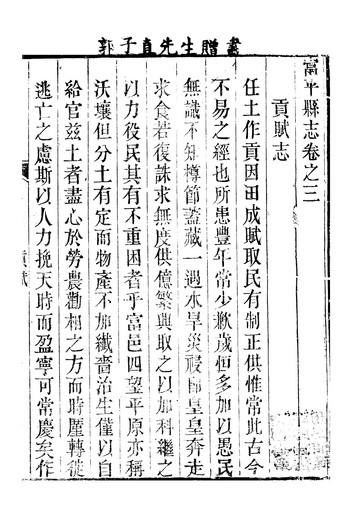 郭子直先生贈書
富平縣志卷之三
貢賦志
任土作貢因田成賦取民有制正供惟常此古今
不易之經也所患豐年常少歉歲恒多加以愚民
無識不知樽節蓋藏一遇水旱災祲卽皇皇奔走
求食若復誅求無度供億繁興取之以加科繼之
以力役民其有不重困者乎富邑四望平原亦稱
沃壤但分土有定而物產不加纖嗇治生僅以自
給官玆土者盡心於勞農勸相之方而時厪轉徙
逃亡之慮斯以人力挽天時而盈寧可常慶矣作
貢賦